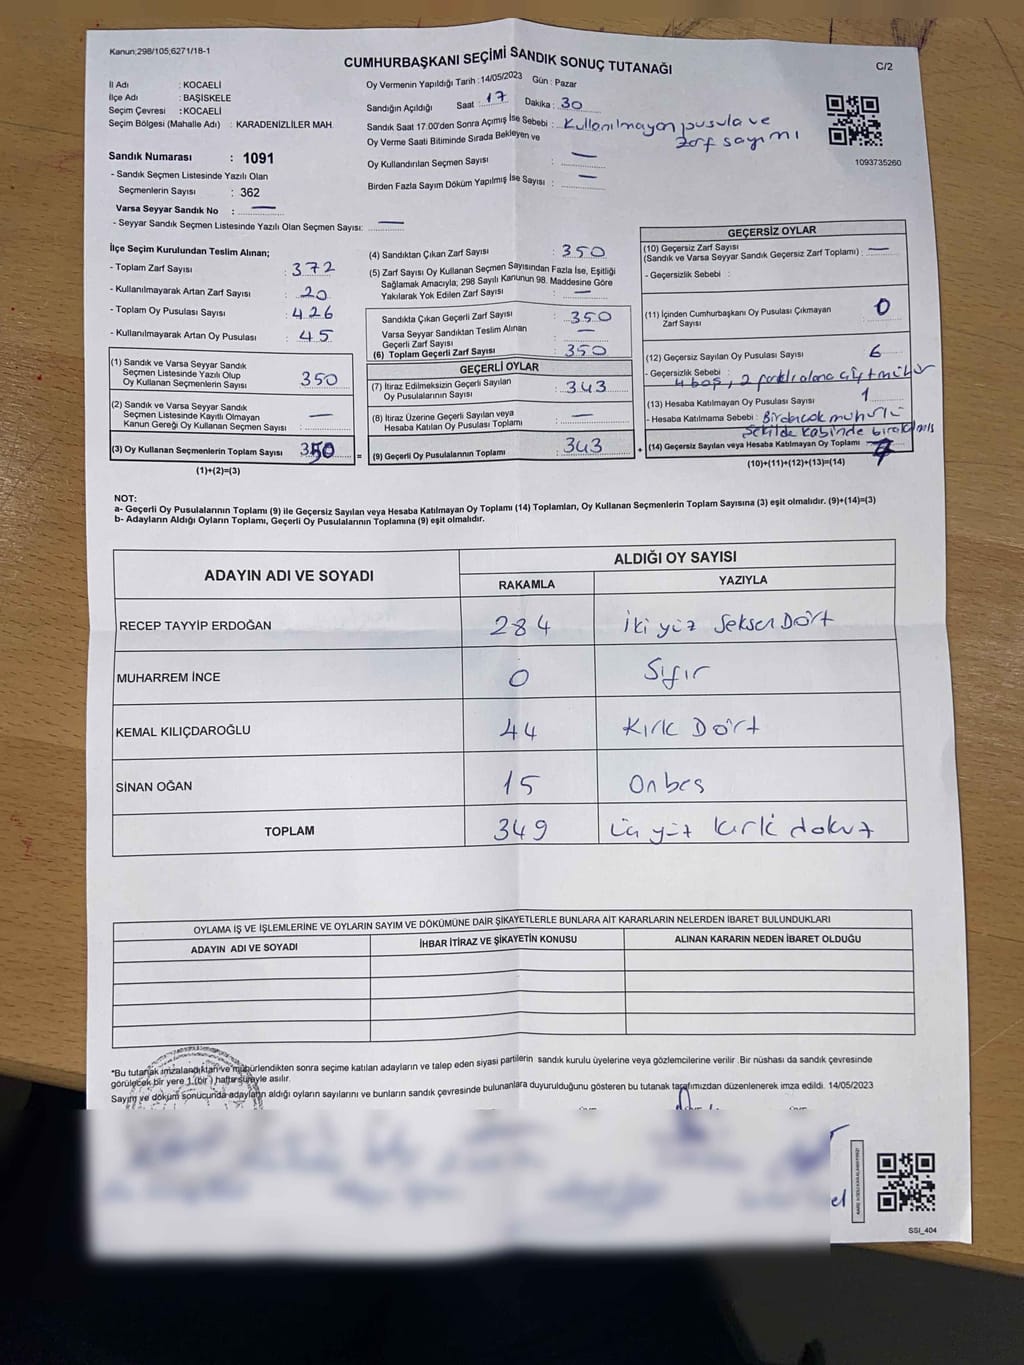 Kanun;298/105,6271/18-1
CUMHURBAŞKANI SEÇİMİ SANDIK SONUÇ TUTANAĞI
C/2
İl Adı : KOCAELİ
İlçe Adı : BAŞİSKELE
Seçim Çevresi : KOCAELİ
Seçim Bölgesi (Mahalle Adı) : KARADENİZLİLER MAH.
Oy Vermenin Yapıldığı Tarih : 14/05/2023 Gün : Pazar
Sandığın Açıldığı Saat : 17 Dakika : 30
Sandık Saat 17.00'den Sonra Açımış İse Sebebi : Kullanılmayan pusula ve
zarf sayımı
Oy Verme Saati Bitiminde Sırada Bekleyen ve
Oy Kullandırılan Seçmen Sayısı : —
Birden Fazla Sayım Döküm Yapılmış İse Sayısı : —
1093735260
Sandık Numarası : 1091
- Sandık Seçmen Listesinde Yazılı Olan
Seçmenlerin Sayısı : 362
Varsa Seyyar Sandık No : —
- Seyyar Sandık Seçmen Listesinde Yazılı Olan Seçmen Sayısı: —
İlçe Seçim Kurulundan Teslim Alınan;
- Toplam Zarf Sayısı : 372
- Kullanılmayarak Artan Zarf Sayısı : 20
- Toplam Oy Pusulası Sayısı : 426
- Kullanılmayarak Artan Oy Pusulası : 45
(1) Sandık ve Varsa Seyyar Sandık
Seçmen Listesinde Yazılı Olup
Oy Kullanan Seçmenlerin Sayısı : 350
(2) Sandık ve Varsa Seyyar Sandık
Seçmen Listesinde Kayıtlı Olmayan
Kanun Gereği Oy Kullanan Seçmen Sayısı : —
(3) Oy Kullanan Seçmenlerin Toplam Sayısı : 350 =
(1)+(2)=(3)
(4) Sandıktan Çıkan Zarf Sayısı : 350
(5) Zarf Sayısı Oy Kullanan Seçmen Sayısından Fazla İse, Eşitliği
Sağlamak Amacıyla; 298 Sayılı Kanunun 98. Maddesine Göre
Yakılarak Yok Edilen Zarf Sayısı : —
Sandıkta Çıkan Geçerli Zarf Sayısı : 350
Varsa Seyyar Sandıktan Teslim Alınan
Geçerli Zarf Sayısı : —
(6) Toplam Geçerli Zarf Sayısı : 350
GEÇERLİ OYLAR
(7) İtiraz Edilmeksizin Geçerli Sayılan
Oy Pusulalarının Sayısı : 343
(8) İtiraz Üzerine Geçerli Sayılan veya
Hesaba Katılan Oy Pusulası Toplamı : —
(9) Geçerli Oy Pusulalarının Toplamı : 343 +
GEÇERSİZ OYLAR
(10) Geçersiz Zarf Sayısı
(Sandık ve Varsa Seyyar Sandık Geçersiz Zarf Toplamı) : —
- Geçersizlik Sebebi :
(11) İçinden Cumhurbaşkanı Oy Pusulası Çıkmayan
Zarf Sayısı : 0
(12) Geçersiz Sayılan Oy Pusulası Sayısı : 6
- Geçersizlik Sebebi :
4 boş, 2 farklı alana çift mühür
(13) Hesaba Katılmayan Oy Pusulası Sayısı : 1
- Hesaba Katılmama Sebebi : Bırakacak mühürlü
şekilde kabinde bırakılmış
(14) Geçersiz Sayılan veya Hesaba Katılmayan Oy Toplamı : 7
(10)+(11)+(12)+(13)=(14)
NOT:
a- Geçerli Oy Pusulalarının Toplamı (9) ile Geçersiz Sayılan veya Hesaba Katılmayan Oy Toplamı (14) Toplamları, Oy Kullanan Seçmenlerin Toplam Sayısına (3) eşit olmalıdır. (9)+(14)=(3)
b- Adayların Aldığı Oyların Toplamı, Geçerli Oy Pusulalarının Toplamına (9) eşit olmalıdır.
ADAYIN ADI VE SOYADI
ALDIĞI OY SAYISI
RAKAMLA YAZIYLA
RECEP TAYYİP ERDOĞAN 284 İki yüz Seksen Dört
MUHARREM İNCE 0 Sıfır
KEMAL KILIÇDAROĞLU 44 Kırk Dört
SİNAN OĞAN 15 Onbeş
TOPLAM 349 Üç yüz kırk dokuz
OYLAMA İŞ VE İŞLEMLERİNE VE OYLARIN SAYIM VE DÖKÜMÜNE DAİR ŞİKAYETLERLE BUNLARA AİT KARARLARIN NELERDEN İBARET BULUNDUKLARI
ADAYIN ADI VE SOYADI İHBAR İTİRAZ VE ŞİKAYETİN KONUSU ALINAN KARARIN NEDEN İBARET OLDUĞU
*Bu tutanak imzalandıktan ve mühürlendikten sonra seçime katılan adayların ve talep eden siyasi partilerin sandık kurulu üyelerine veya gözlemcilerine verilir .Bir nüshası da sandık çevresinde
görülecek bir yere 1 (bir ) hafta süreyle asılır.
Sayım ve döküm sonucunda adayların aldığı oyların sayılarını ve bunların sandık çevresinde bulunanlara duyurulduğunu gösteren bu tutanak tarafımızdan düzenlenerek imza edildi. 14/05/2023
el
SSI_404